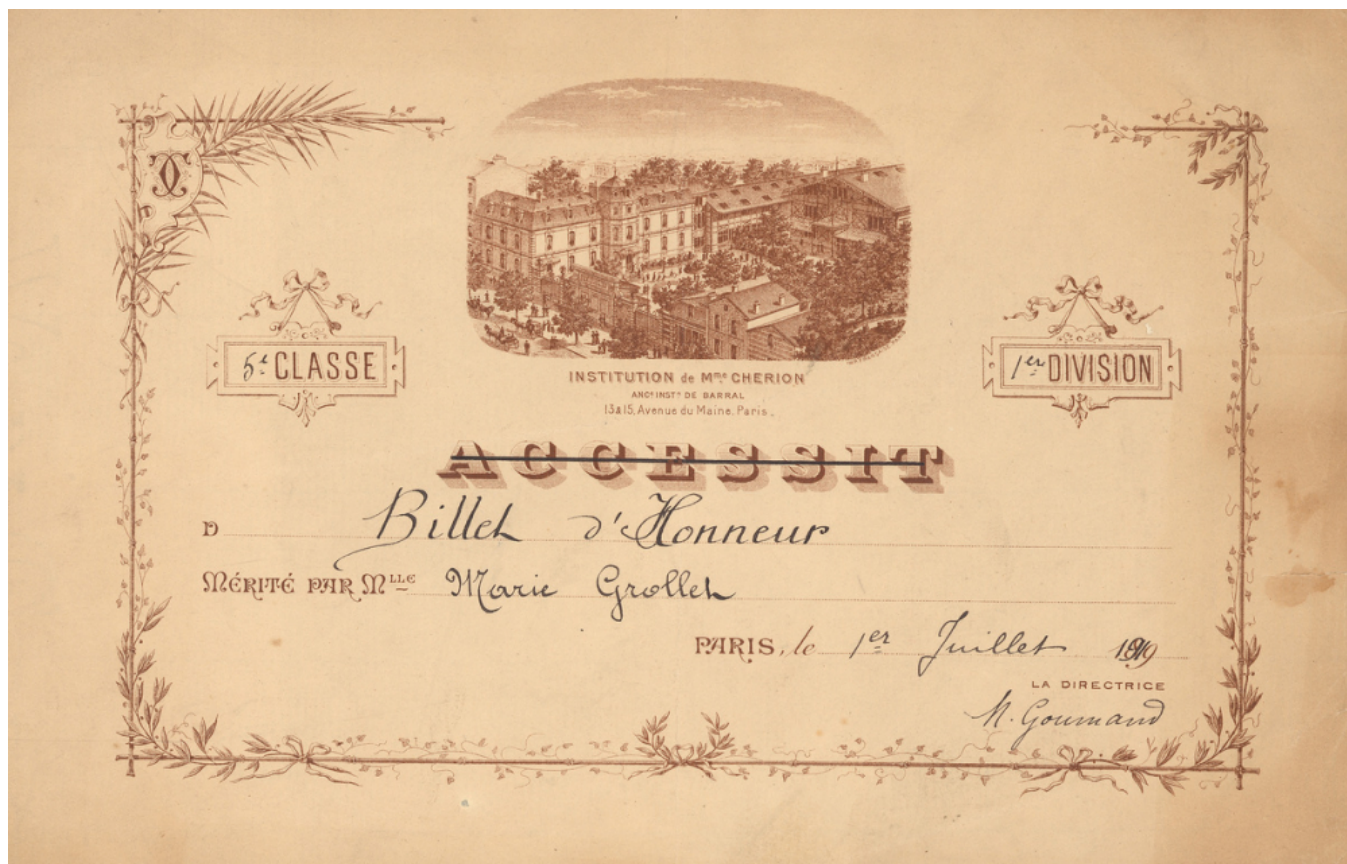 5e CLASSE
1er DIVISION
INSTITUTION de Mme CHERION
ANCne INSTon DE BARRAL
13 à 15, Avenue du Maine, Paris.
ACCESSIT
D Billet d'Honneur
MÉRITÉ PAR MLLE Marie Grollet
PARIS, le 1er Juillet 1919
LA DIRECTRICE
M. Goumand